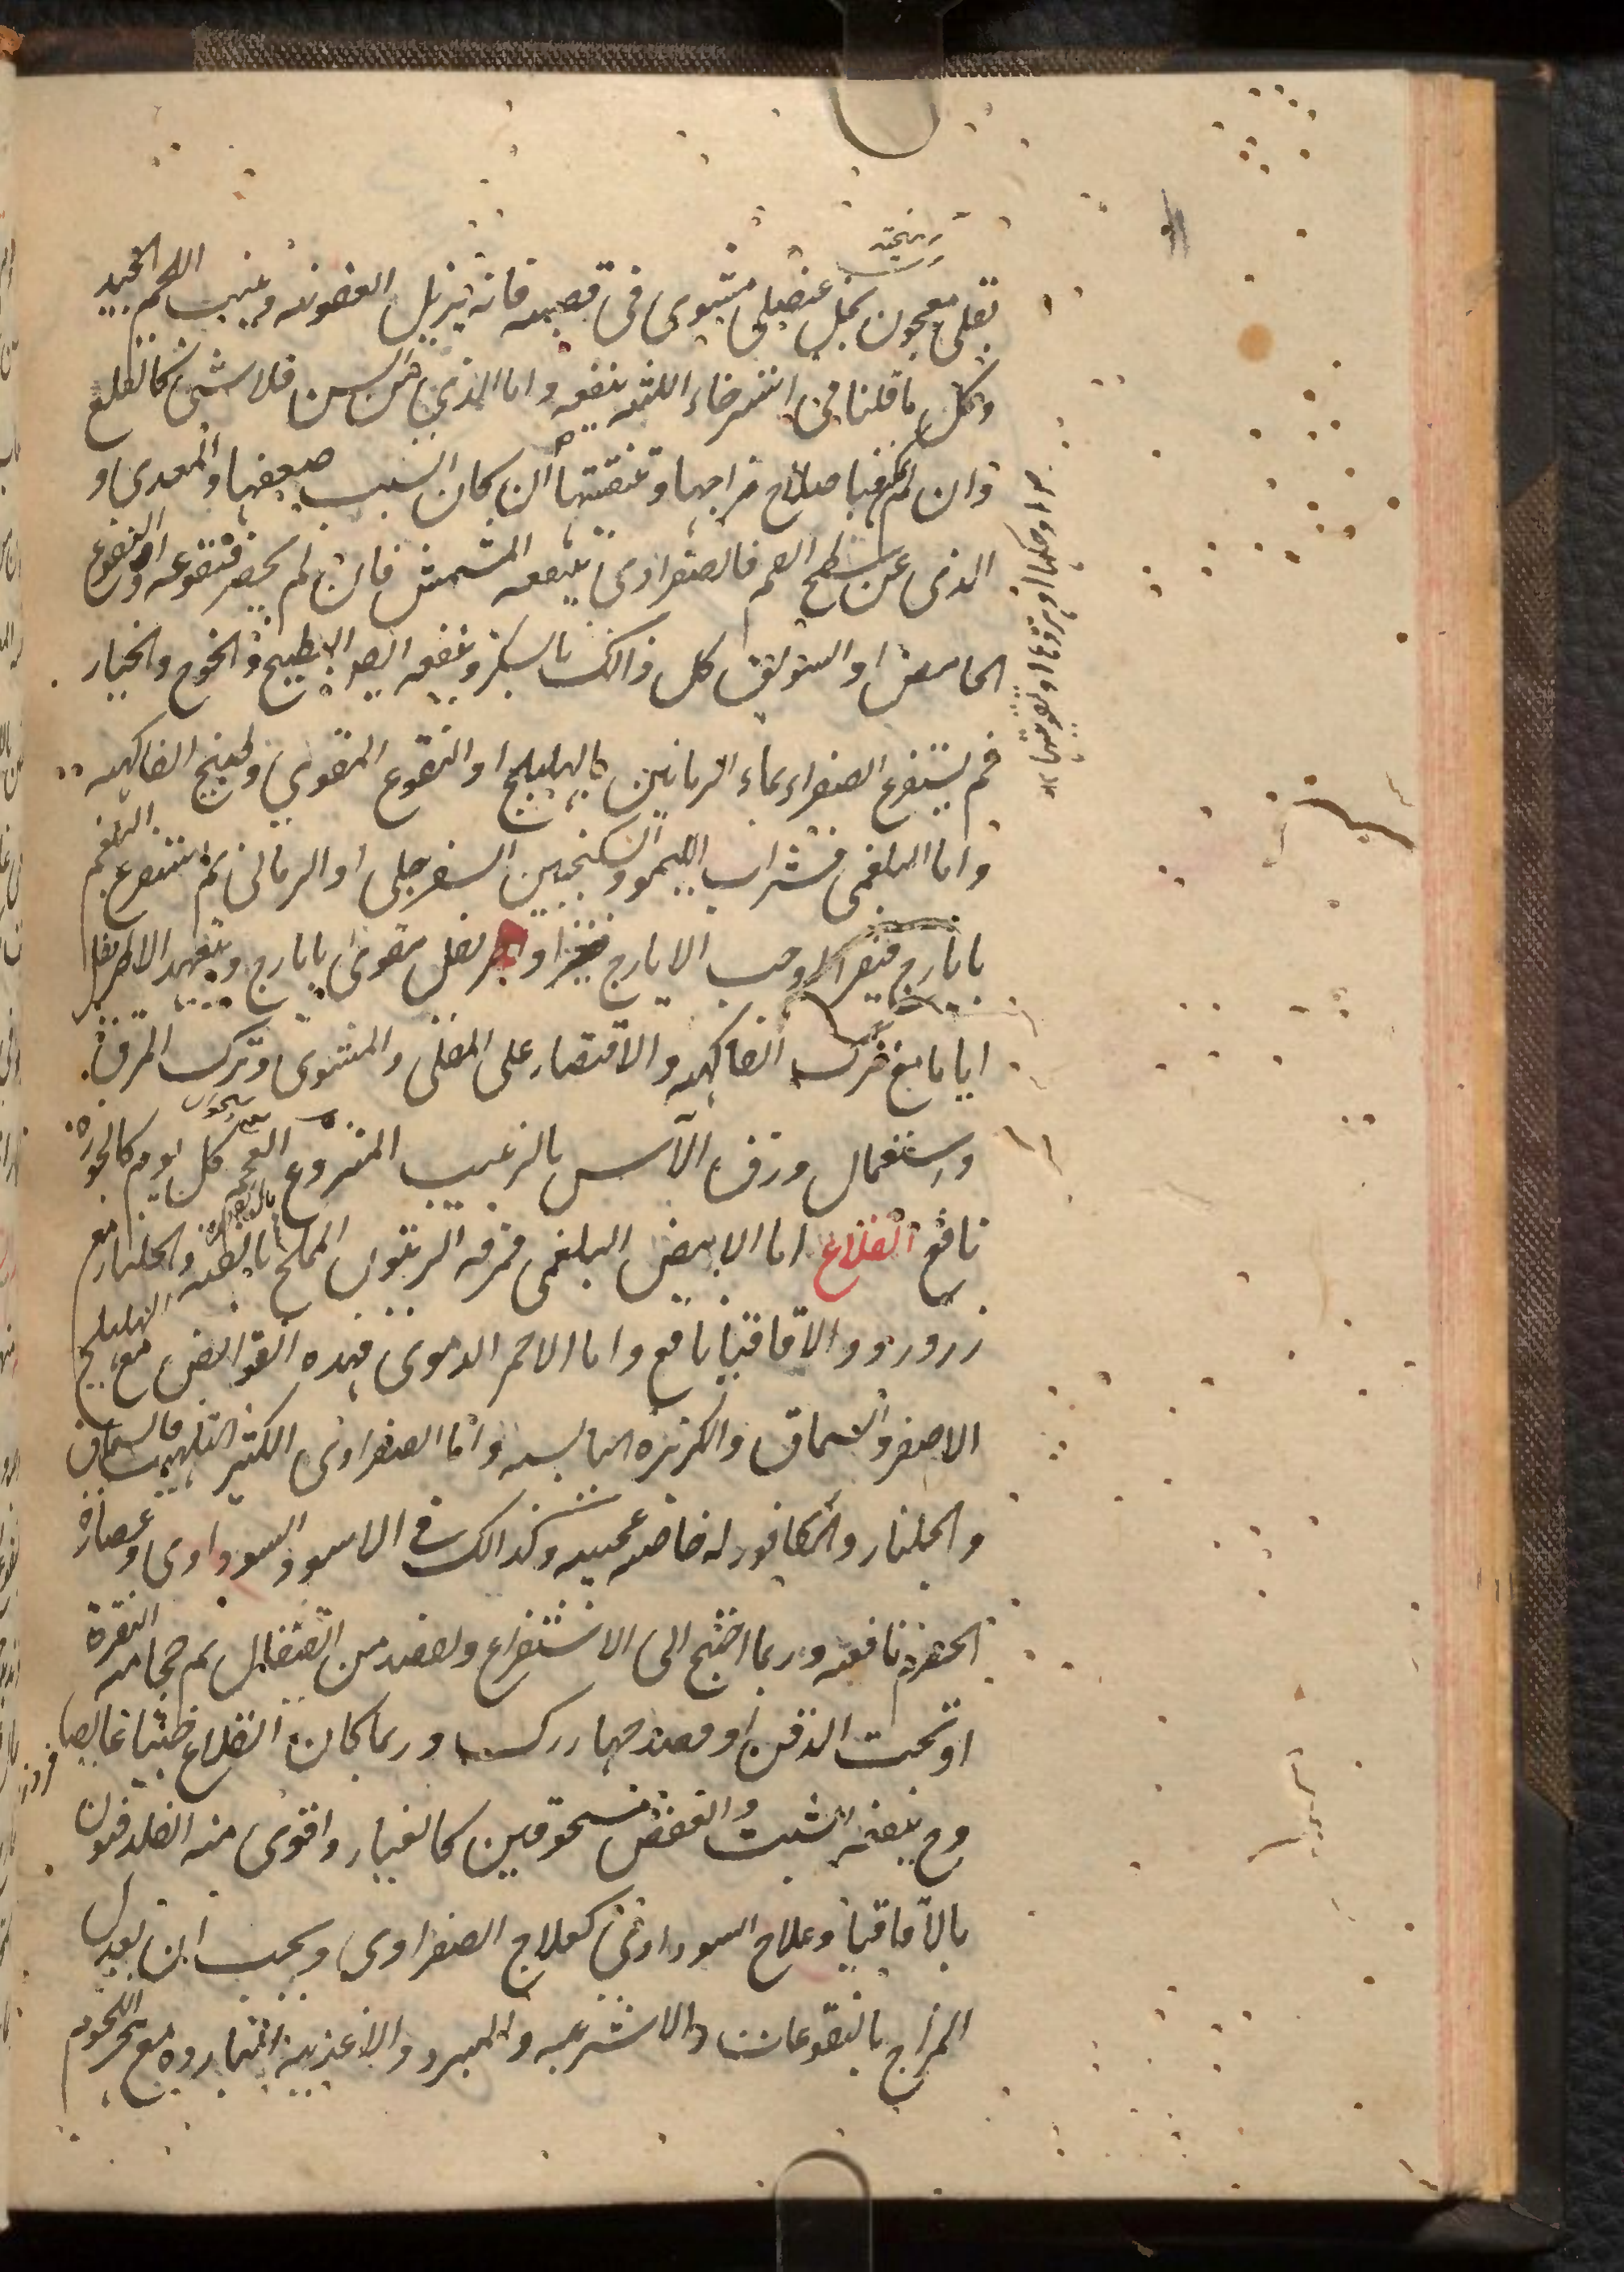 بقلى معجون بخل عنصلى مشوى فى قصبه فانه يزيل العفونه وينبت اللحم الجيد
وكل ما قلنا فى استرخاء اللثه ينفعه واما الذى من السن فلا شى كالقلع
وان لم فباصلاح مزاجها وتنقيتها ان كان السبب ضعفها والمعدى و
الذى عن سطح الفم فالصفراوى ينفعه المشمش فان لم يحضر فنقوعه او النقوع
الحامض او السويق كل ذالك بالسكر وينفعه ايضا البطيخ والخوخ والخيار
ثم يستفرغ الصفراء بماء الرمانين بالهليلج او النقوع المقوى وطبيخ الفاكهه
واما البلغمى فشراب الليمو والسكنجبين السفرجلى او الرمانى ثم استفرغ البلغم
بايارج فيقرا او حب الايارج او اطريفل مقوى بايارج ويتعهد الاطريفل
اياما مع ترك الفاكهه والاقتصار على المقلى والمشوى وترك المرق
واستعمال ورق الآس بالزبيب المنزوع العجم كل يوم كالجوزه
نافع القلاع اما الابيض البلغمى فمرقه الزيتون المملح والجلنار مع
زرورد والآقاقيا نافع واما الاحمر الدموى فهذه القوابض مع الهليلج
الاصفر والسماق والكزبره اليابسه واما الصفراوى الكثير التلهب فالسماق
والجلنار والكافور له خاصه عجيبه وكذالك فى الاسود السوداوى وعصارة
الحصرم نافعه وربما احتيج الى الاستفراغ وفصد من القيفال ثم حجامه النقرة
او تحت الذقن او فصد چهاررك وربما كان القلاع خبيثا غايصا
وح ينفعه الشب والعفص مسحوقين كالغبار واقوى منه القلدفيون
بالآقاقيا وعلاج السوداوى كعلاج الصفراوى ويجب ان يعدل
المزاج بالنقوعات والاشربه والمبرد والاغذيه البارده مع هجر اللحوم